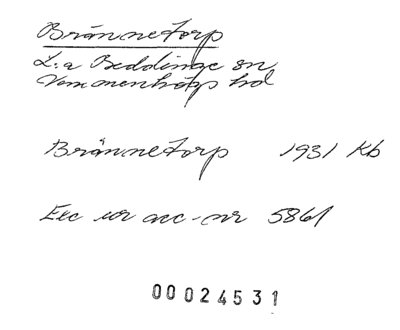 Brännetorp
L:a Beddinge sn
Vemmenhögs hd
Brännetorp 1931 Kb
Exc ur acc-nr 5861
00024531